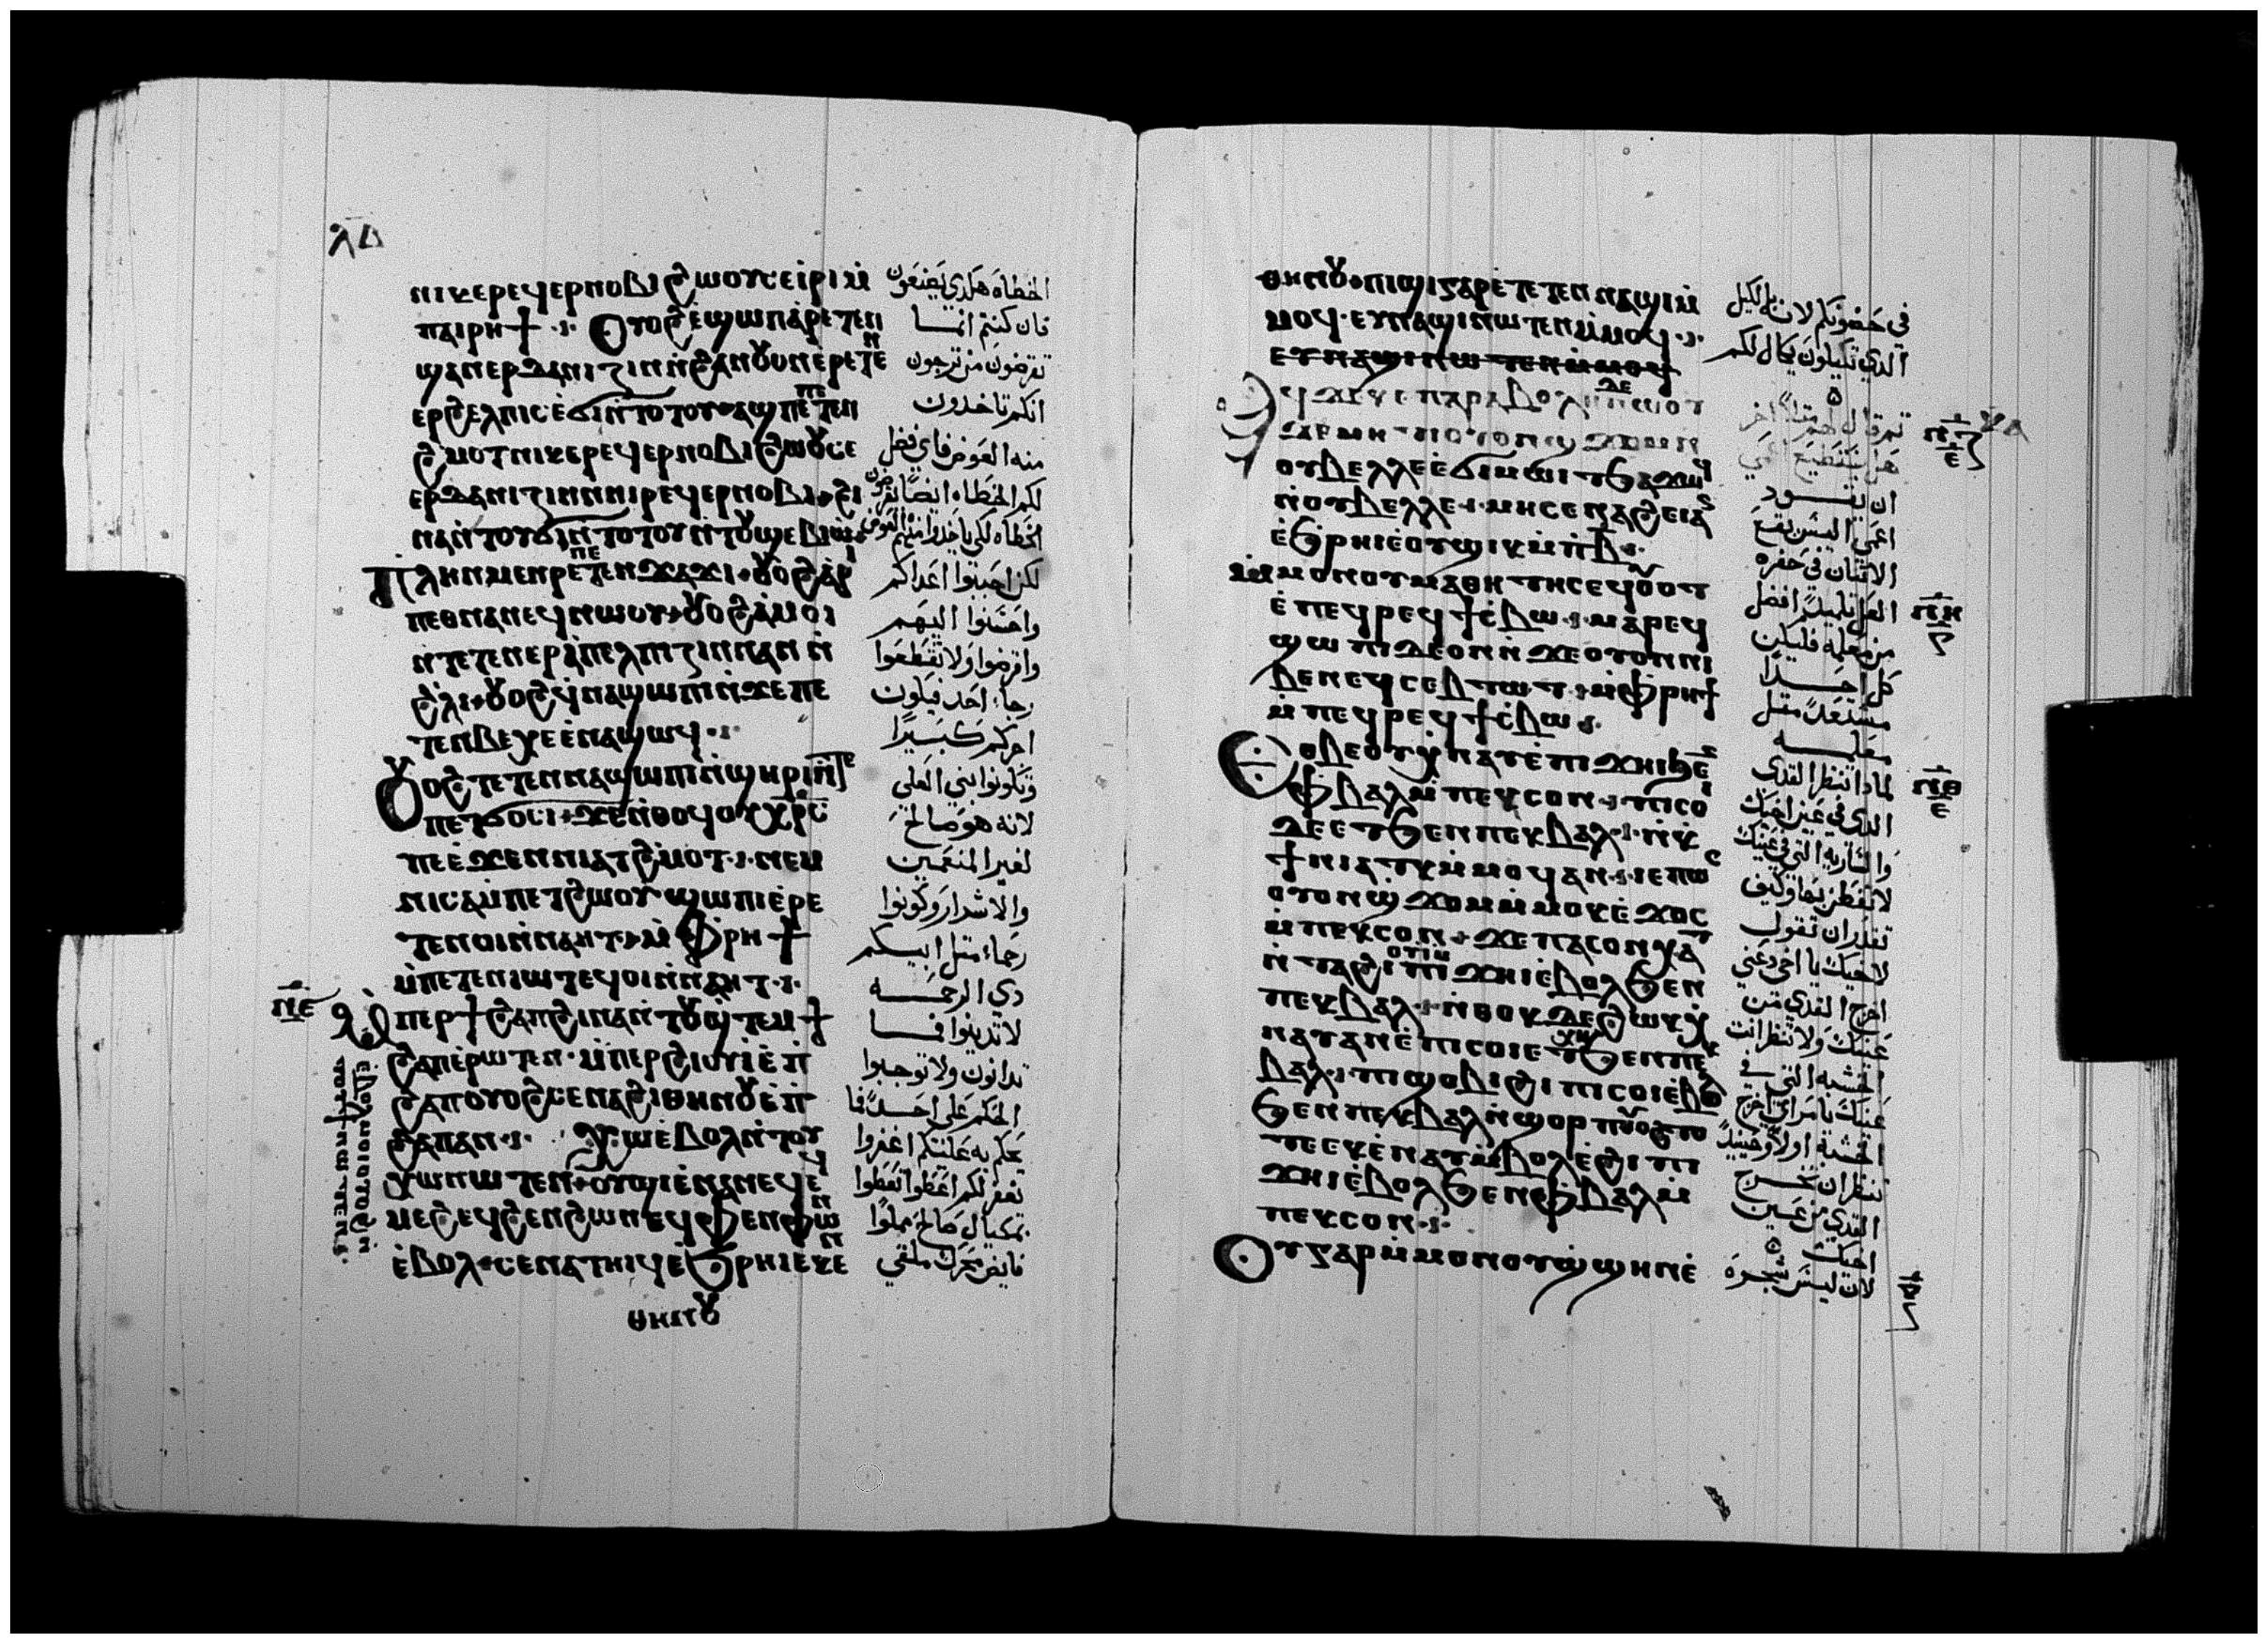 ⲗⲇ
ⲛⲓⲕⲉⲣⲉϥⲉⲣⲛⲟⲃⲓ ϩⲱⲟⲩ ⲥⲉⲓⲣⲓ ⲙ̀
ⲡⲁⲓⲣⲏϯ ⲟⲩⲟϩ ⲉϣⲱⲡ ⲁⲣⲉⲧⲉⲛ
ϣⲁⲛⲉⲣⲇⲁⲛⲓⲍⲓⲛ ⲛ̀ϩⲁⲛⲟⲩⲟⲛ ⲉ̀ⲣⲉⲧⲉⲛ
ⲉⲣϩⲉⲗⲡⲓⲥ ⲉ̀ϭⲓ ⲛ̀ⲧⲟⲧⲟⲩ ⲁϣ ⲡⲉ ⲡⲉⲧⲉⲛ
ϩⲙⲟⲧ ⲛⲓⲕⲉⲣⲉϥⲉⲣⲛⲟⲃⲓ ϩⲱⲟⲩ ⲥⲉ
ⲉⲣⲇⲁⲛⲓⲍⲓⲛ ⲛⲛⲓⲣⲉϥⲉⲣⲛⲟⲃⲓ ϩⲓ
ⲛⲁ ⲛ̀ⲧⲟⲩϭⲓ ⲛ̀ⲧⲟⲧⲟⲩ ⲛ̀ⲧⲟⲩϣⲉⲃⲓⲱ
ⲡⲗⲏⲛ ⲙⲉⲛⲣⲉ ⲛⲉⲧⲉⲛϫⲁϫⲓ ⲟⲩⲟϩ ⲁⲣⲓ
ⲡⲉⲑⲛⲁⲛⲉϥ ⲛⲱⲟⲩ ⲟⲩⲟϩ ⲙⲟⲓ
ⲛ̀ⲧⲉⲧⲉⲛⲉⲣⲁ̀ⲡⲉⲗⲡⲓⲍⲓⲛ ⲛⲁⲛ ⲛ̀
ϩ̀ⲗⲓ ⲟⲩⲟϩ ϥ̀ⲛⲁϣⲱⲡⲓ ⲛ̀ϫⲉ ⲡⲉ
ⲧⲉⲛⲃⲉⲭⲉ ⲉ̀ⲛⲁϣⲱϥ
ⲟⲩⲟϩ ⲧⲉⲧⲉⲛⲛⲁϣⲱⲡⲓ ⲛ̀ϣⲏⲣⲓ ⲛ̀ⲧⲉ
ⲡⲉⲧϭⲟⲥⲓ ϫⲉ ⲛ̀ⲑⲟϥ ⲟⲩⲭⲣⲥ
ⲡⲉ ⲉ̀ϫⲉⲛ ⲛⲓⲁⲧϩⲙⲟⲧ ⲛⲉⲙ
ⲛⲓⲥⲁⲙⲡⲉⲧϩⲱⲟⲩ ϣⲱⲡⲓ ⲉ̀ⲣⲉ
ⲧⲉⲛⲟⲓ ⲛ̀ⲛⲁⲏⲧ ⲙ̀ⲫⲣⲏϯ
ⲙ̀ⲡⲉⲧⲉⲛⲓⲱⲧ ⲉϥⲟⲓ ⲛ̀ⲛⲁⲏⲧ
ⲛⲉ
ⲙ̀ⲡⲉⲣϯϩⲁⲡ ϩⲓⲛⲁ ⲛ̀ⲧⲟⲩϣ̀ⲧⲉⲙϯ
ϩⲁⲡ ⲉ̀ⲣⲱⲧⲉⲛ ⲙ̀ⲡⲉⲣϩⲓⲟⲩⲓ̀ ⲉ̀ⲡ
ϩⲁⲡ ⲟⲩⲟϩ ⲥⲉⲛⲁϩⲓ ⲑⲏⲛⲟⲩ ⲉ̀ⲡ̀
ϩⲁⲡ ⲁⲛ ⲭⲱ ⲉ̀ⲃⲟⲗ ⲛ̀ⲧⲟⲩ
ⲭⲱ ⲛⲱⲧⲉⲛ ⲟⲩϣⲓ ⲉ̀ⲛⲁⲛⲉϥ ⲉϥ
ⲙⲉϩ ⲉϥϩⲉⲛϩⲱⲛ ⲉϥⲫⲉⲛⲫⲱⲛ
ⲉ̀ⲃⲟⲗ ⲥⲉⲛⲁⲧⲏⲓϥ ⲉ̀ϧⲣⲏⲓ ⲉⲕⲉⲛ
ⲑⲏⲛⲟⲩ
ⲉⲃⲟⲗ ⲙⲟⲓ ⲟⲩⲟϩ ⲛ̀
ⲧⲟⲩϯ ⲛⲱⲧⲉⲛ
الخطاه هكدي يصنعون
فان كنتم انما
تقرضون من ترجون
انكم تاخدون
منه العوض فاي فضل
لكم الخطاه ايضًا يقرضون
الخطاه لكي ياخدوا منهم العوض
لكن احبوا اعداكم
واحسنوا اليهم
واقرضوا ولا تقطعوا
رجاء احد فيكون
اجركم كبيرًا
وتكونوا بني العلي
لانه هو صالح
لغير المنعمين
والاشرار وكونوا
رحماء متل ابيكم
دي الرحمه
لا تدينوا فما
تدانون ولا توجبوا
الحكم علي احدًا فما
يحكم به عليكم اغفروا
يغفر لكم اعطوا تعطوا
بمكيال صالح مملوا
فايض مهزوز ملقي
ⲑⲏⲛⲟⲩ ⲡⲓϣⲓ ⲅⲁⲣ ⲉ̀ⲧⲉⲧⲉⲛⲛⲁϣⲓ ⲙ̀
ⲙⲟϥ ⲉⲩⲛⲁϣⲓ ⲛⲱⲧⲉⲛ ⲙ̀ⲙⲟϥ
ⲉⲩⲛⲁϣⲓ ⲛⲱⲧⲉⲛ ⲙ̀ⲙⲟϥ
ⲁϥϫⲉ ⲕⲉⲡⲁⲣⲁⲃⲟⲗⲏ ⲇⲉ ⲛⲱⲟⲩ
ϫⲉ ⲙⲏ ⲟⲩⲟⲛ ϣϫⲟⲙ ⲛ
ⲟⲩⲃⲉⲗⲗⲉ ⲉ̀ϭⲓⲙⲱⲓⲧ ϧⲁϫⲱϥ
ⲛ̀ⲟⲩⲃⲉⲗⲗⲉ ⲙⲏ ⲥⲉⲛⲁϩⲉⲓ ⲁⲛ
ⲉ̀ϧⲣⲏⲓ ⲉⲟⲩϣⲓⲕ ⲙ̀ⲡⲃ
ⲙ̀ⲙⲟⲛ ⲟⲩⲙⲁⲑⲏⲧⲏⲥ ⲉϥⲟⲩⲟⲧ
ⲉ̀ⲡⲉϥⲣⲉϥϯⲥⲃⲱ ⲙⲁⲣⲉϥ
ϣⲱⲡⲓ ⲇⲉ ⲟⲛ ⲛ̀ϫⲉ ⲟⲩⲟⲛ ⲛⲓ
ⲃⲉⲛ ⲉϥⲥⲉⲃⲧⲱⲧ ⲙ̀ⲫⲣⲏϯ
ⲙ̀ⲡⲉϥⲣⲉϥϯⲥⲃⲱ
ⲉⲑⲃⲉⲟⲩ ⲭ̀ⲛⲁⲩ ⲉ̀ⲡⲓϫⲏⲓ ϧⲉⲛ
ⲫⲃⲁⲗ ⲙ̀ⲡⲉⲕⲥⲟⲛ ⲡⲓⲥⲟⲓ
ⲇⲉ ⲉⲧϧⲉⲛ ⲡⲉⲕⲃⲁⲗ ⲛ̀ⲕ
ϯⲛⲓⲁⲧⲕ ⲙ̀ⲙⲟϥ ⲁⲛ ⲓⲉ ⲡⲱⲥ
ⲟⲩⲟⲛ ϣ̀ϫⲟⲙ ⲙ̀ⲙⲟⲕ ⲉ̀ϫⲟⲥ
ⲙ̀ⲡⲉⲕⲥⲟⲛ ϫⲉ ⲡⲁⲥⲟⲛ ⲭⲁⲧ
ⲛ̀ⲧⲁϩⲓⲟⲩⲓ ⲙ̀ⲡⲓϫⲏⲓ ⲉ̀ⲃⲟⲗϧⲉⲛ
ⲡⲉⲕⲃⲁⲗ ⲛ̀ⲑⲟⲕ ⲇⲉ ϩⲱⲕ ⲭ̀
ⲛⲁⲩ ⲁⲛ ⲉ̀ⲡⲓⲥⲟⲓ ⲉⲧⲭⲏ ϧⲉⲛ ⲡⲉⲕ
ⲃⲁⲗ ⲡⲓϣⲟⲃⲓ ϩⲓ ⲡⲓⲥⲟⲓ ⲉ̀ⲃⲟⲗ
ϧⲉⲛ ⲡⲉⲕⲃⲁⲗ ⲛ̀ϣⲟⲣⲡ ⲟⲩⲟϩ ⲧⲟ
ⲧⲉ ⲉⲕⲉ̀ⲛⲁⲩ ⲙ̀ⲃⲟⲗ ⲉ̀ϩⲓ ⲡⲓ
ϫⲏⲓ ⲉ̀ⲃⲟⲗϧⲉⲛ ⲫⲃⲁⲗ ⲙ̀
ⲡⲉⲕⲥⲟⲛ
ⲟⲩ ⲅⲁⲣ ⲙ̀ⲙⲟⲛ ⲟⲩϣ̀ϣⲏⲛ ⲉ̀
في حضونكم لانه بالكيل
الدي تكيلون يكال لكم
تم قال لهم متلاً اخر
هل يستطيع اعمي
ان يقود
اعمي اليس يقع
الاتنان في حفره
العل تلميدًا افضل
من معلمه فليكن
كل احدًا
مستعدًا متل
معلمه
لمادا تنظر القدي
الدي في عين اخيك
والساريه التي في عينك
لا تفطن بها وكيف
تقدر ان تقول
لاخيك يا اخي دعني
اخرج القدي من
عينك ولا تنظر انت
الخشبه التي في
عينك يا مراي اخرج
الخشبة اولاً وحينيدً
تنظر ان تخرج
القدي من عين
اخيك
لان ليس شجره
ⲛⲍ
ⲉ
ⲛⲏ
ⲛⲑ
ⲉ
ⲝ